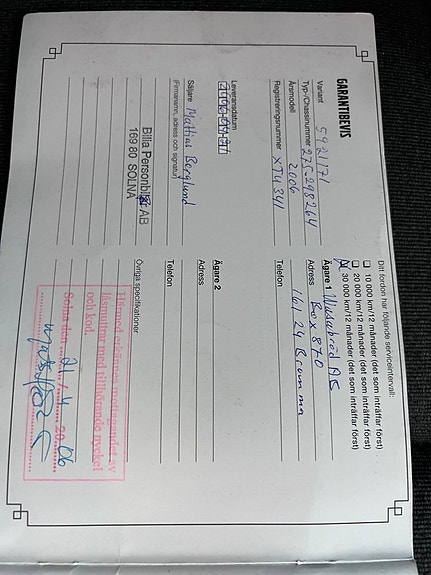 GARANTIBEVIS
Variant 5921171
Typ-/Chassinummer 275-298264
Årsmodell 2006
Registreringsnummer XTU 341
Leveransdatum
Säljare Mattias Berglund
(Firmanamn, adress och signatur)
Bilia Personbilar AB
169 80 SOLNA
Ditt fordon har följande serviceintervall:
10 000 km/12 månader (det som inträffar först)
20 000 km/12 månader (det som inträffar först)
30 000 km/12 månader (det som inträffar först)
Ägare 1
Adress Box 870
161 24 Bromma
Telefon
Ägare 2
Adress
Telefon
Övriga specifikationer
Härmed erkännes mottagandet av
låsmuttrar med tillhörande nyckel
och kod.
Solna den 21 / 4 20 06